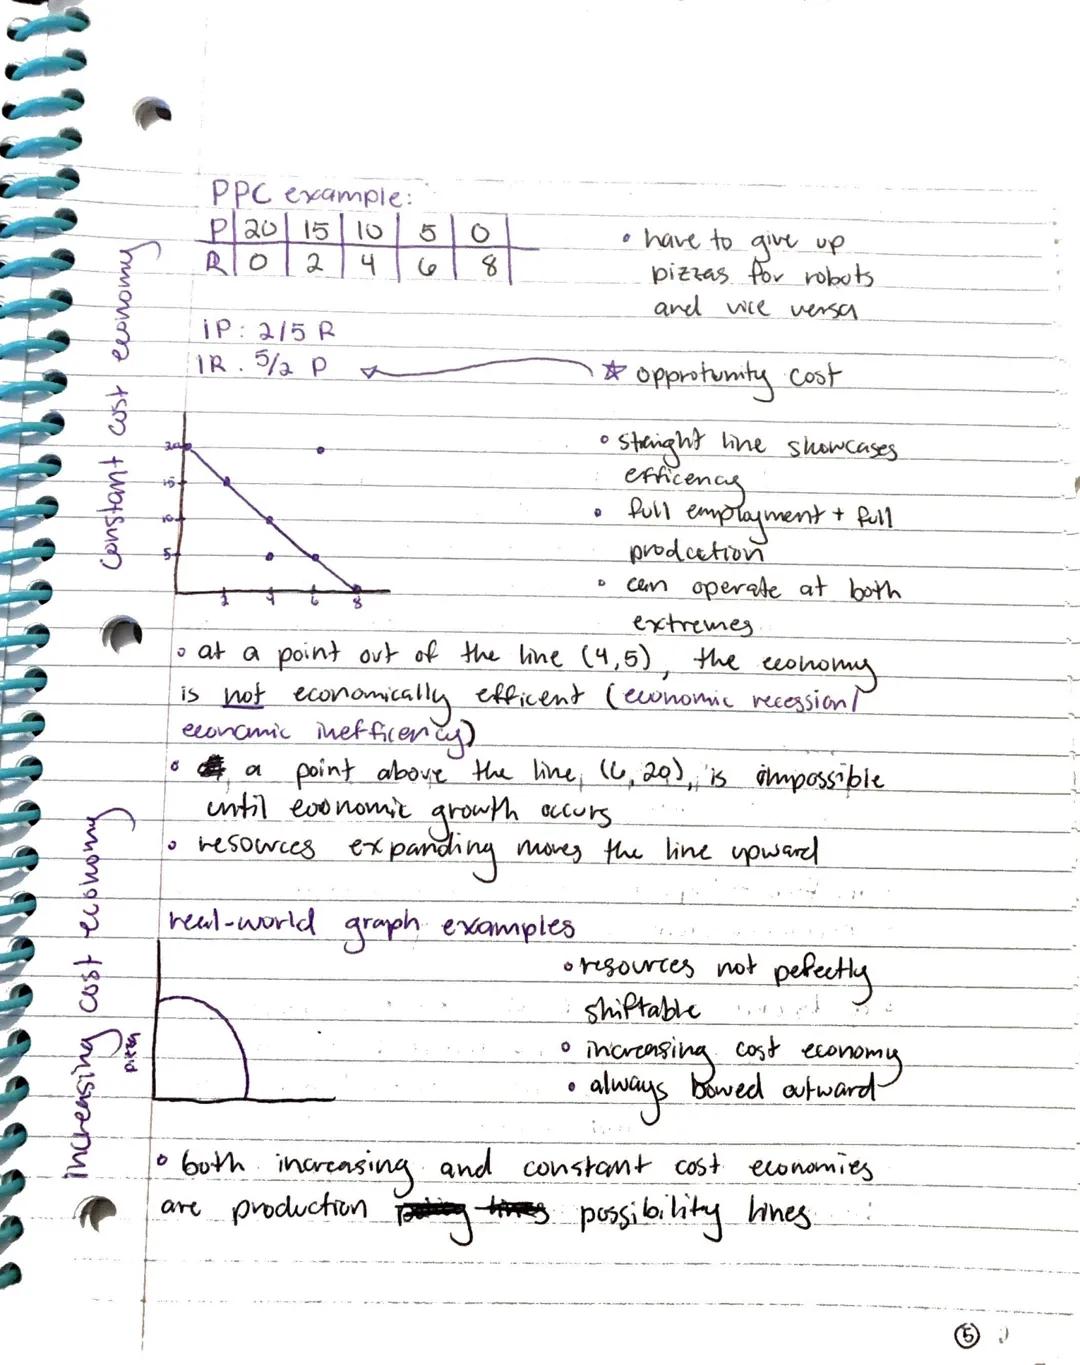 PPC example:
P 20 15 10 5 0
R 0 2 4 6 8
• have to give up
pizzas for robots
and vice versa
1P: 2/5 R
1R. 5/2 P
☆ opprotunity cost
constant cost economy
20
15
10
5
2 4 6 8
• straight line showcases
efficency
• full employment + full
prodcetion
• can operate at both
extremes
• at a point out of the line (4,5), the economy
is not economically efficent (economic recession/
economic inefficency)
• a point above the line, (6, 20), is impossible
until economic growth occurs
• resources expanding moves the line upward
increasing cost economy
real-world graph examples
pizza
• resources not pefectly
shiftable
• increasing cost economy
• always bowed outward
• both increasing and constant cost economies
are production possibility lines
5